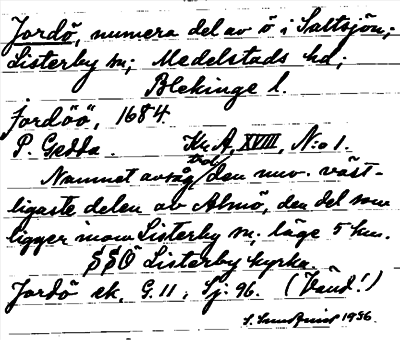 Jordö, numera del av ö i Saltsjön;
Listerby sn; Medelstads hd;
Blekinge l.
Jordöö, 1684
P. Gedda. Kr. A, XVIII, N:o 1.
Namnet avsåg trol. den nuv. väst-
ligaste delen av Almö, den del som
ligger inom Listerby sn; läge 5 km.
SSO Listerby kyrka.
Jordö ek. G. 11; Sj. 96. (Vänd!)
1936.